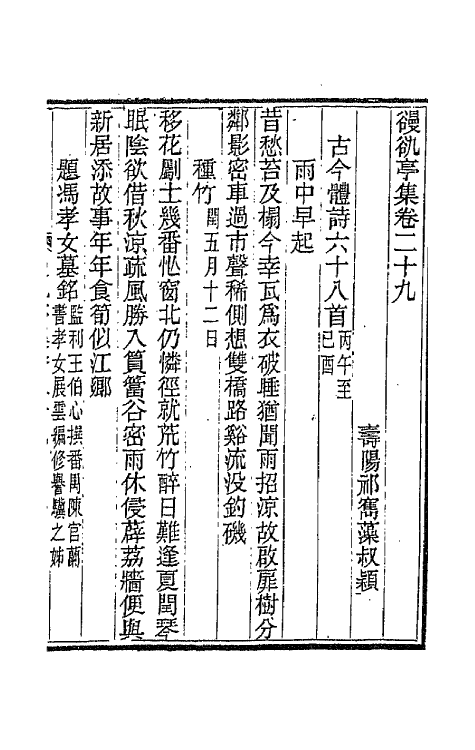 䜱䜪亭集卷二十九
壽陽祁寯藻叔穎
古今體詩六十八首丙午至己酉
雨中早起
昔愁苔及榻今幸瓦爲衣破睡猶聞雨招涼故啟扉樹分
鄰影密車過市聲稀側想雙橋路谿流没釣磯
種竹閏五月十二日
移花劚土幾番忙窗北仍憐徑就荒竹醉日難逢夏閏琴
眠陰欲借秋涼疏風勝入篔簹谷密雨休侵薜荔牆便與
新居添故事年年食筍似江鄉
題馮孝女墓銘監利王伯心撰番禺陳官蘭
書孝女展雲編修譽驥之姊